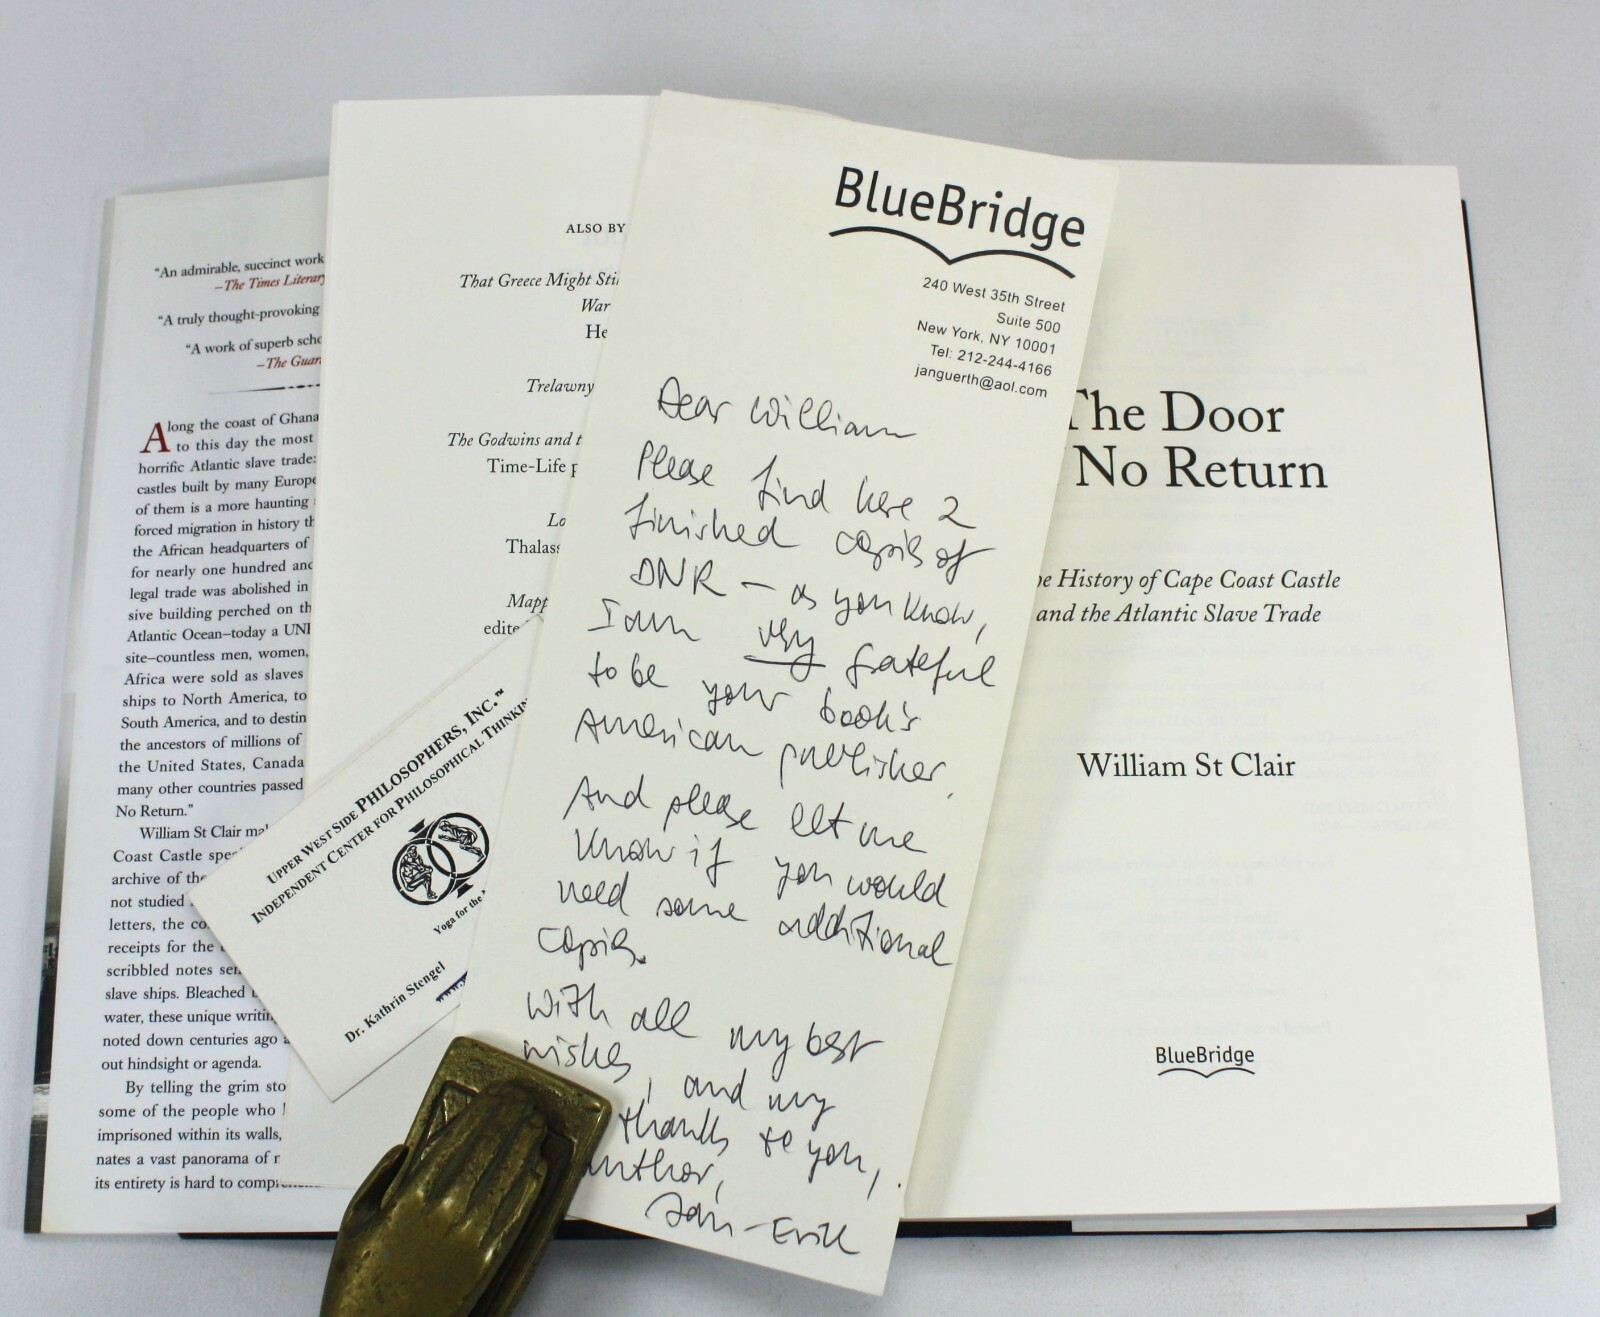 "An admirable, succinct work
–The Times Literary
"A truly thought-provoking
"A work of superb scho
–The Guar
Along the coast of Ghana
to this day the most
horrific Atlantic slave trade:
castles built by many Europe
of them is a more haunting
forced migration in history th
the African headquarters of
for nearly one hundred and
legal trade was abolished in
sive building perched on th
Atlantic Ocean–today a UNE
site–countless men, women,
Africa were sold as slaves
ships to North America, to
South America, and to destin
the ancestors of millions of
the United States, Canada
many other countries passed
No Return."
William St Clair mak
Coast Castle spec
archive of the
not studied
letters, the co
receipts for the
scribbled notes sen
slave ships. Bleached b
water, these unique writin
noted down centuries ago a
out hindsight or agenda.
By telling the grim sto
some of the people who l
imprisoned within its walls,
nates a vast panorama of r
its entirety is hard to compr
ALSO BY
That Greece Might Stil
War
He
Trelawny
The Godwins and t
Time-Life p
Lo
Thalass
Mapp
edite
UPPER WEST SIDE PHILOSOPHERS, INC.™
INDEPENDENT CENTER FOR PHILOSOPHICAL THINKIN
Yoga for the
Dr. Kathrin Stengel
www.
BlueBridge
240 West 35th Street
Suite 500
New York, NY 10001
Tel: 212-244-4166
janguerth@aol.com
Dear William
Please find here 2
finished copies of
DNR – as you know,
I am very grateful
to be your book's
American publisher.
And please let me
know if you would
need some additional
copies.
With all my best
wishes, and my
thanks to you,
author,
Jan-Erik
The Door
No Return
he History of Cape Coast Castle
and the Atlantic Slave Trade
William St Clair
BlueBridge